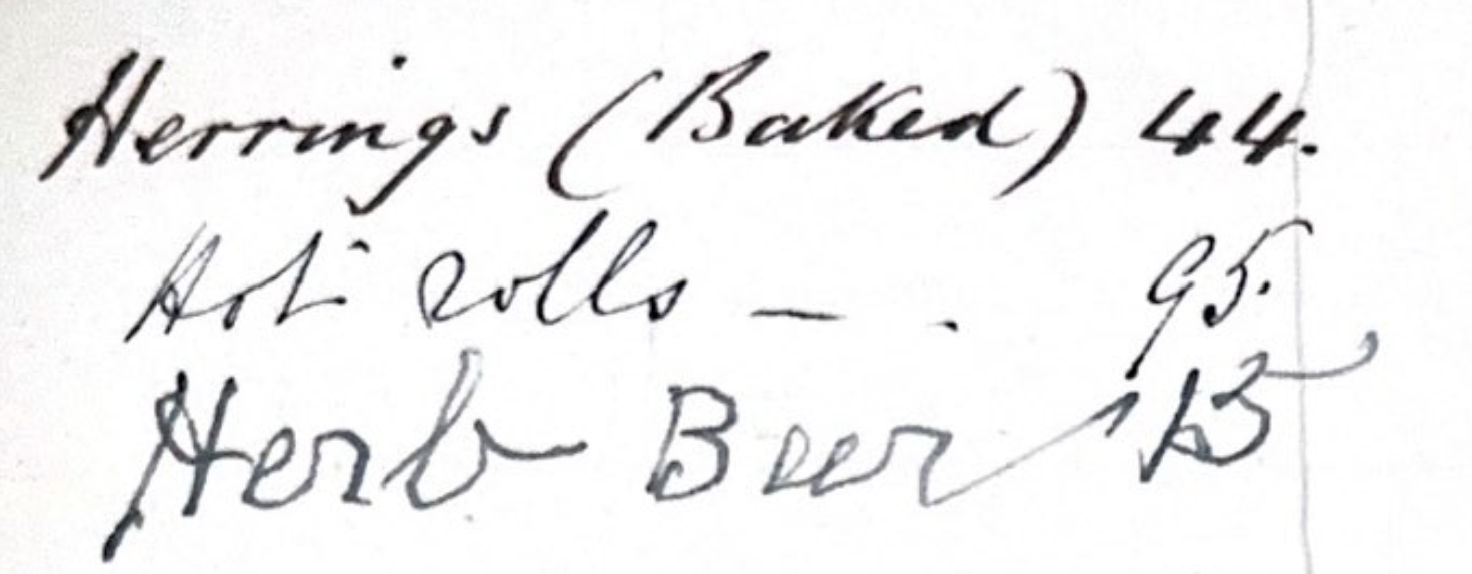 Herrings (Baked) 44.
Hot rolls — . 95.
Herb Beer